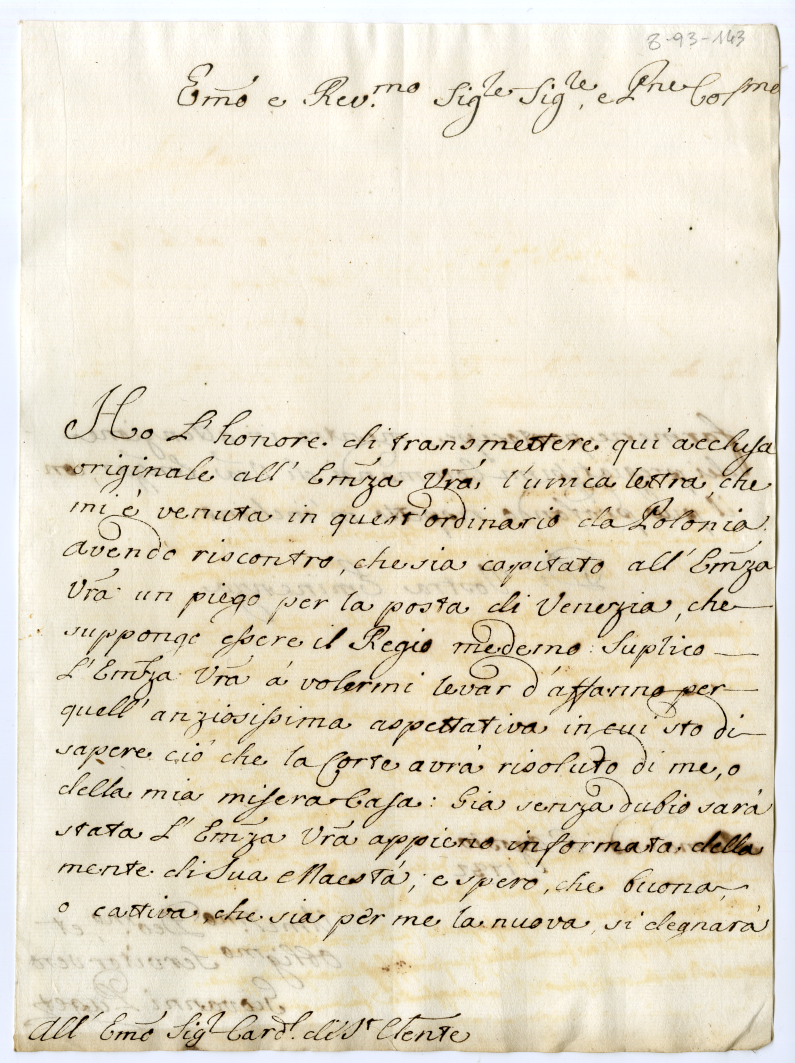 8-93-143
Em̃o e Rev.mo Sigle Sigle, e Pne Cosmo
Ho L'honore di transmettere qui acclusa
originale all' Em̃za Vrã l'unica lettra che
mi è venuta in quest'ordinario da Polonia
avendo riscontro, che sia capitato all' Em̃za
Vrã un piego per la posta di Venezia, che
suppongo essere il Regio medemo: Suplico
L'Em̃za Vrã á volermi levar d'affanno per
quell'anziosissima aspettativa in cui sto di
sapere ció che la Corte avrá risoluto di me, o
della mia misera Casa: Gia senza dubio sará
stata L'Em̃za Vrã appieno informata della
mente di Sua Maestá; e spero, che buona,
o cattiva, che sia per me la nuova, si degnará
All' Em̃o Sigl Cardl. di St. Clente